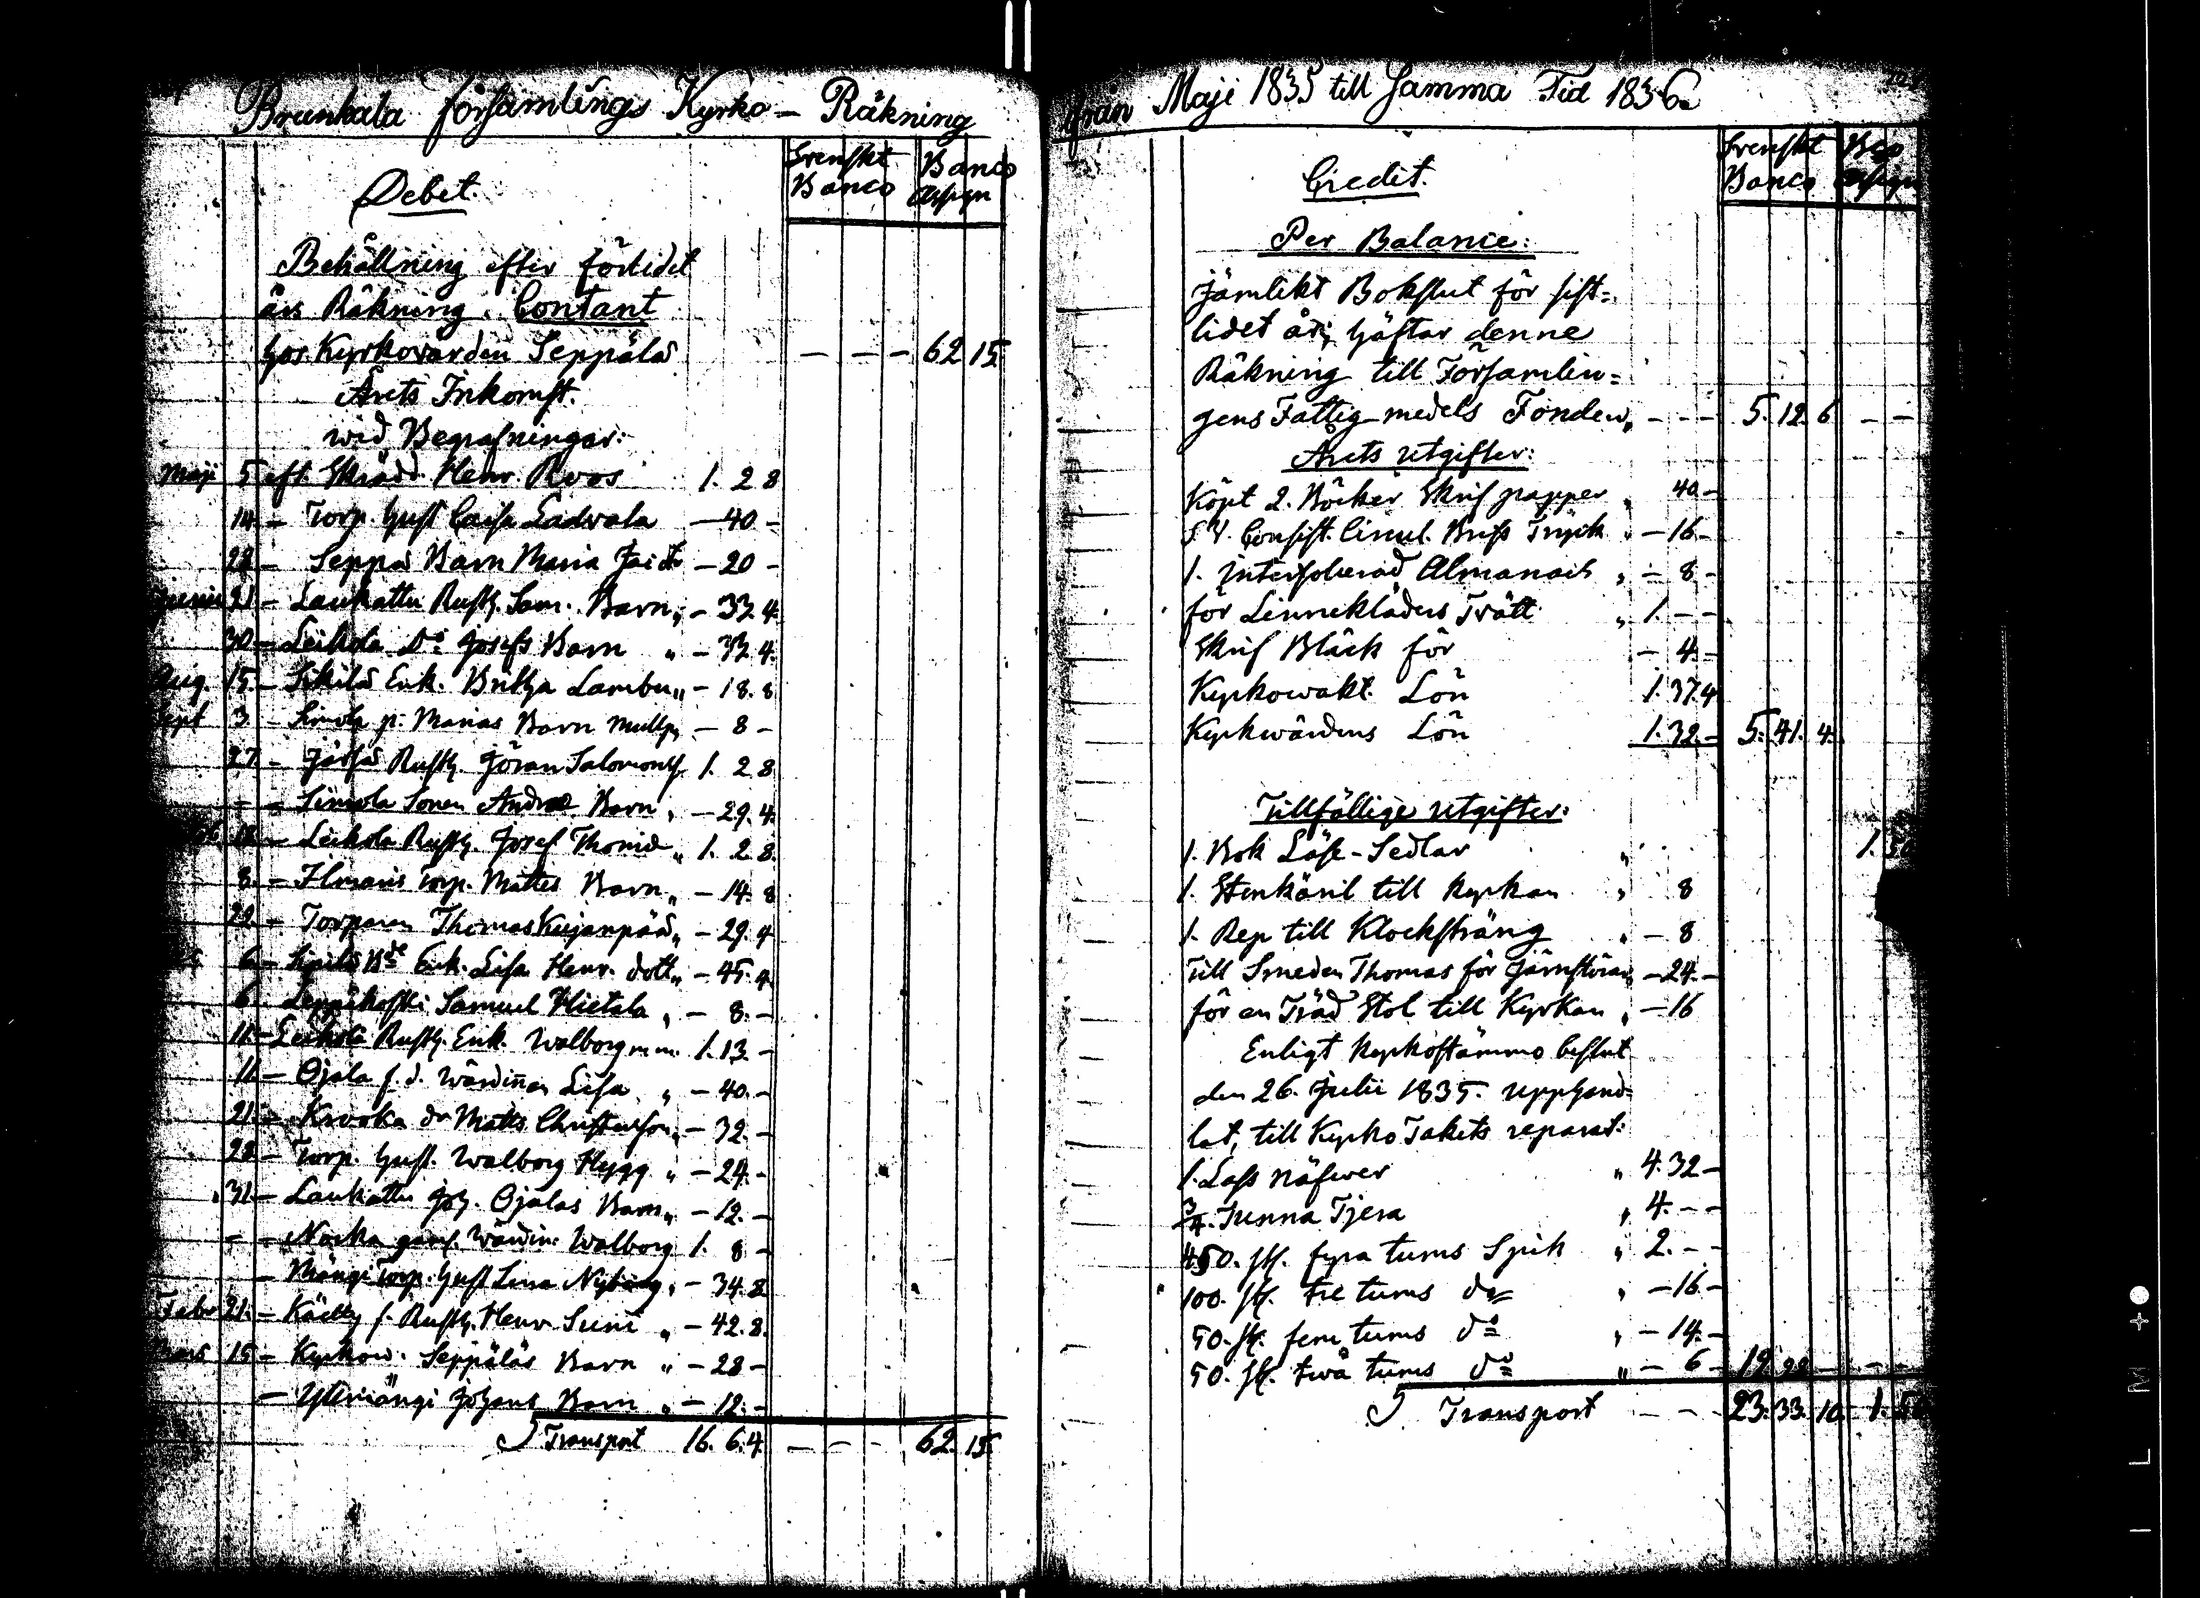 Brunkala församlings Kyrko - Räkning
Svenskt Banco
Banco Assign
Debet.
Behållning efter förledet
års Räkning. Contant
hos Kyrkovärden Seppälä - - - 62 15
Årets Inkomst.
wid Begrafningar:
Maji 5 eft. Skrädd. Henr. Roos 1. 2 8
14 - Torp. Hust. Caisa Ladvala - 40 -
28 - Seppäs Barn Maria - 20 -
Junii 21 - Laukattu Rusth. Sam. Barn „ - 33. 4
30 - Leikola Do Josefs Barn „ - 33. 4.
Aug. 15 - Enk. Britha „ - 18. 8
Sept 3 - Simola p: Marias Barn - 8 -
27 - Rusth. Göran Salomons. 1. 2 8
- - Simola Sonen Barn „ - 29. 4.
18 - Leikola Rusth. Josef „ 1. 2 8.
8. - Torp. Mattes Barn „ - 14. 8
29. - Torparen Thomas Kujanpää „ - 29. 4
6 - Enk. Lisa Henr. dott. „ - 45. 4
6 - Leppikoski Samuel Hietala „ - 8. -
11. - Leikola Rusth. Enk. Walborg 1. 13. -
11 - Ojala f. d. Wärdinnan Lisa „ - 40. -
21. - Krooka Matts - 32. -
28 - Torp. Hust. Walborg Hygg „ - 24. -
31 - Laukattu Joh. Ojalas Barn „ - 12. -
- - Wärdin: Walborg 1. 8 -
- Mängi Torp. Hust Lisa Nyberg „ - 34. 8
Febr 21. - f. Rusth. Henr „ - 42. 8.
Mars 15 - Kyrkow. Seppäläs Barn „ - 28 -
- Johans Barn „ - 12. -
Transport 16. 6. 4. - - - 62. 15.
från Maji 1835 till Samma Tid 1836
Svenskt Banco
Bco Assign
Credit.
Per Balance:
Jämlikt Bokslut för sist-
lidet år, häftar denne
Räkning till Församlin-
gens Fattig-medels Fonden, - - - 5. 12. 6 - -
Årets utgifter:
Köpt 2. Böcker Skrif papper „ 40 -
Consist. Circul. Brefs Tryck „ - 16 -
1. Interfolierad Almanach „ - 8 -
för Linneklädens Tvätt „ 1. - -
Skrif Bläck för - 4 -
Kyrkowakt. Lön 1. 37. 4
Kyrkwärdens Lön 1. 32. - 5. 41. 4.
Tillfällige utgifter:
1. Bok Läse-Sedlar „ 1. 50
1. Stenkäril till Kyrkan „ 8
1. Rep till Klocksträng „ - 8
Till Smeden Thomas för - 24. -
för en Träd Stol till Kyrkan „ - 16
Enligt Kyrkostämmo beslut
den 26. Julii 1835. upphand-
lat, till Kyrko Takets reparat:
1. Lass Näfwer „ 4. 32 -
3/4. Tunna Tjera „ 4. - -
450. st. fyra tums Spik „ 2. - -
100. st. tre tums do „ - 16 -
50. st. fem tums do „ - 14. -
50. st. twå tums do „ - 6 - 12 28 - - -
Transport - - 23. 33. 10. 1. 50